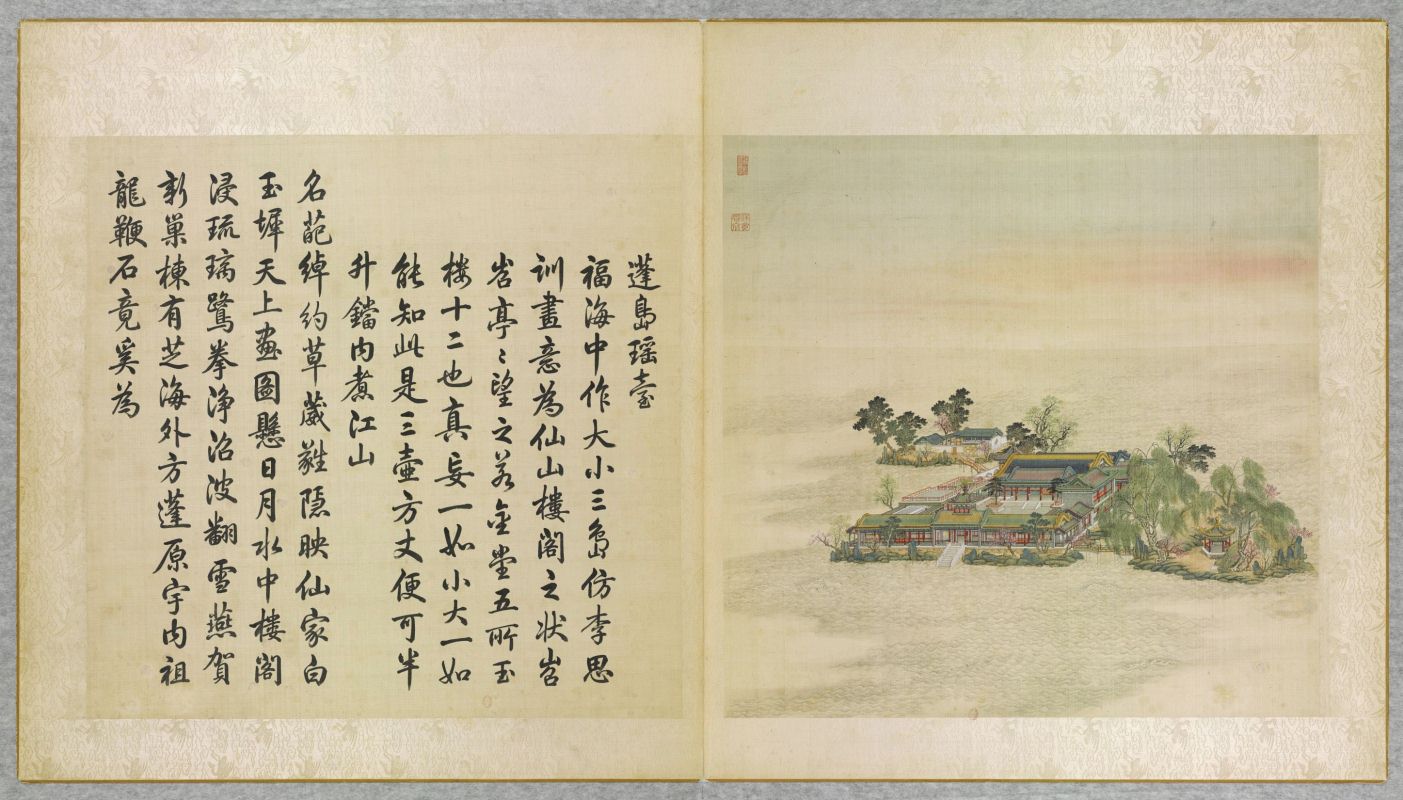 蓬島瑶臺
福海中作大小三島仿李思
訓畫意為仙山樓閣之狀岧
岧亭〻望之若金堂五所玉
樓十二也真妄一如小大一如
能知此是三壺方丈便可半
升鐺内煮江山
名葩綽約草葳蕤隱映仙家白
玉墀天上畫圖懸日月水中樓閣
浸琉璃鷺拳浄沼波翻雪燕賀
新巢棟有芝海外方蓬原宇内祖
龍鞭石竟奚為